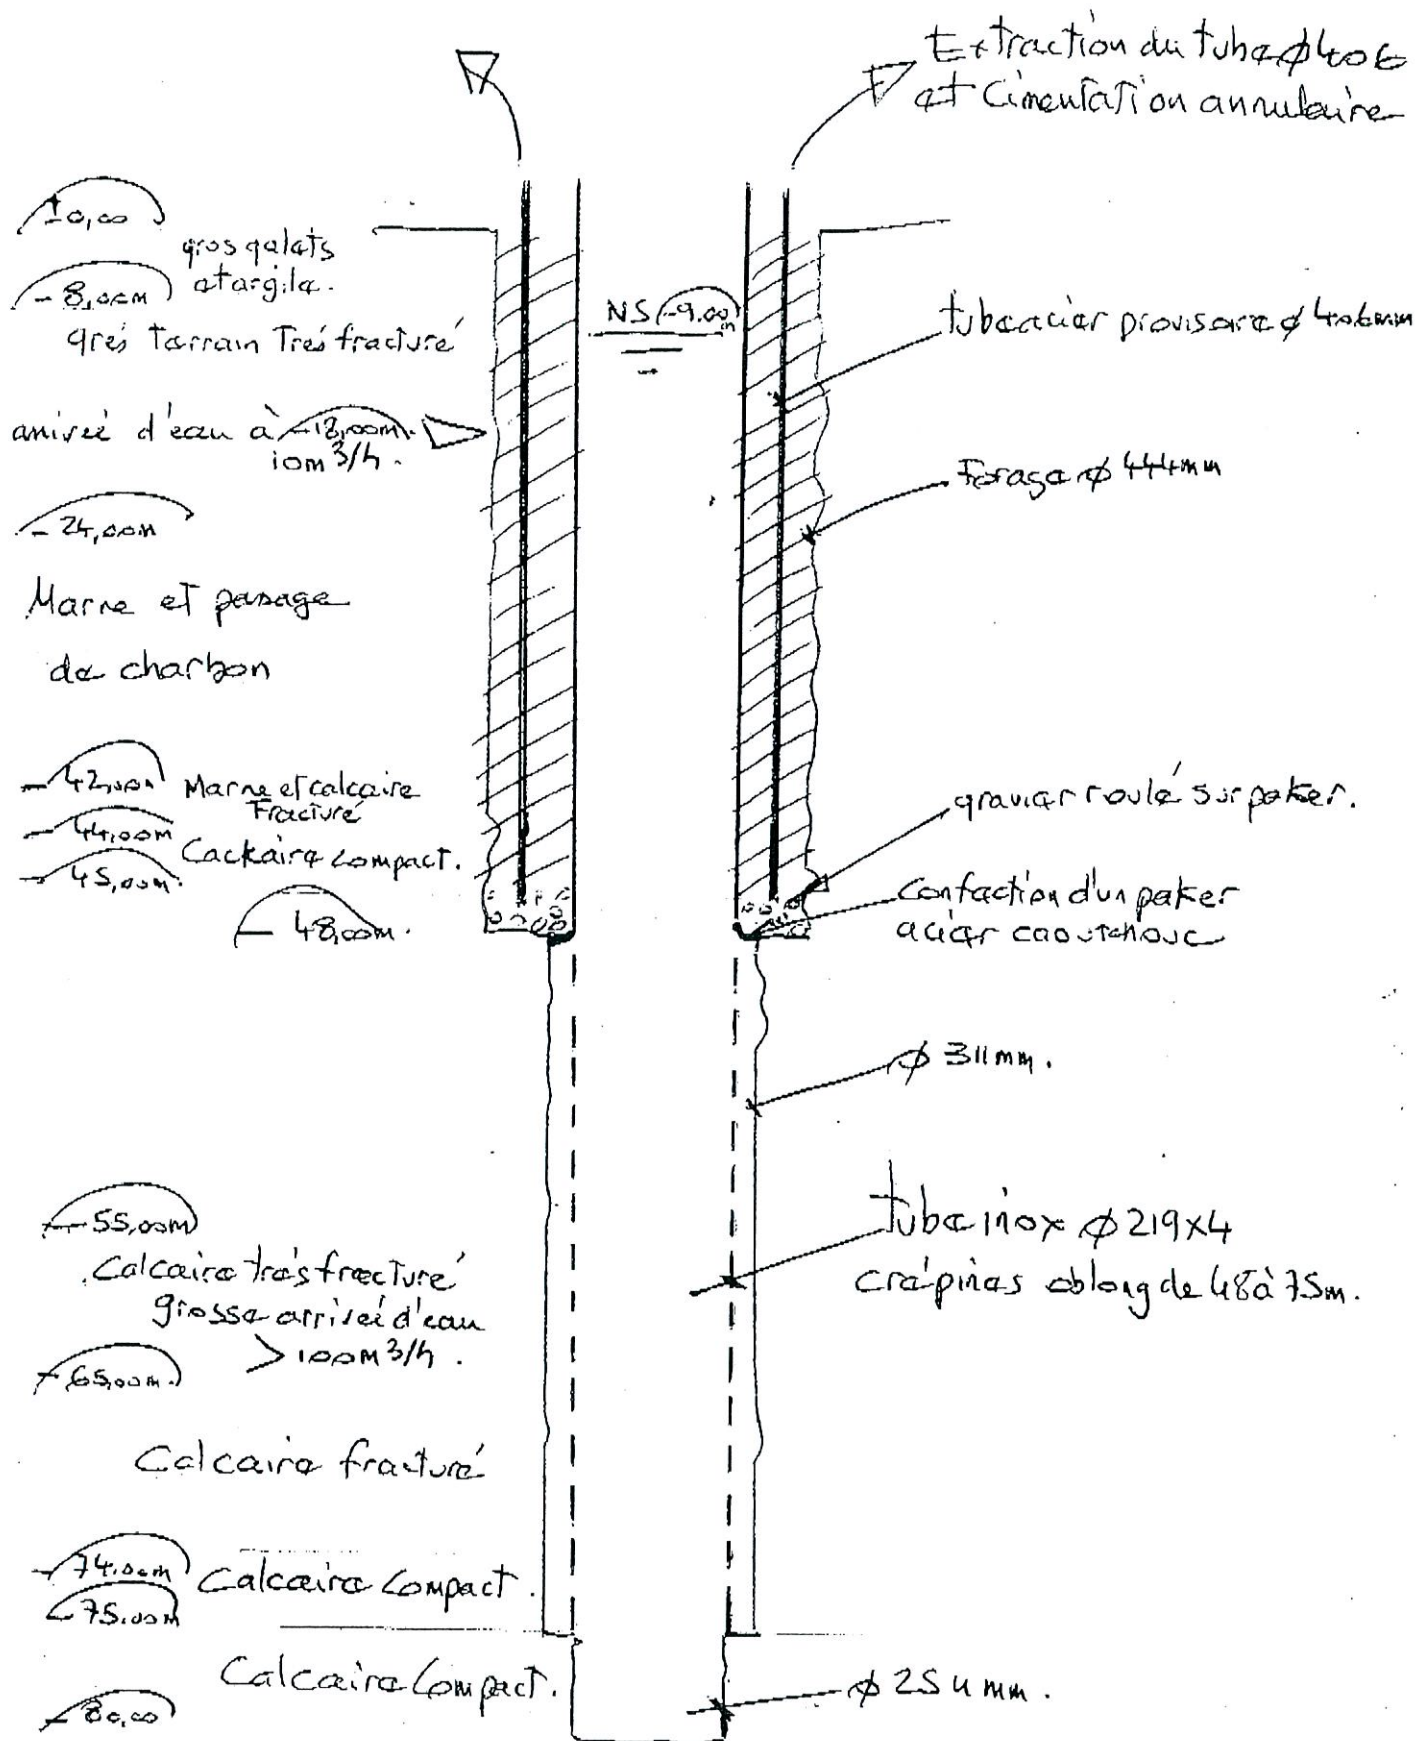 Extraction du tube ø 406
et Cimentation annulaire
±0,00
gros galets
et argile.
-8,00m
grés terrain Trés fracturé
NS -9.00m
tube acier provisoire ø 406mm
arrivée d'eau à -18,00m.
10m3/h.
Forage ø 444mm
-24,00m
Marne et passage
de charbon
-42,00m Marne et calcaire
Fracturé
gravier roulé sur paker.
-44,00m
Cackaire compact.
-45,00m.
Confection d'un paker
acier caoutchouc
-48,00m.
ø 311mm.
-55,00m
Calcaire trés fracturé
grosse arrivée d'eau
> 100m3/h.
tube inox ø 219x4
crépines oblong de 48 à 75m.
-65,00m.
Calcaire fracturé
-74.00m Calcaire Compact.
-75.00m
Calcaire Compact.
ø 254mm.
-80,00